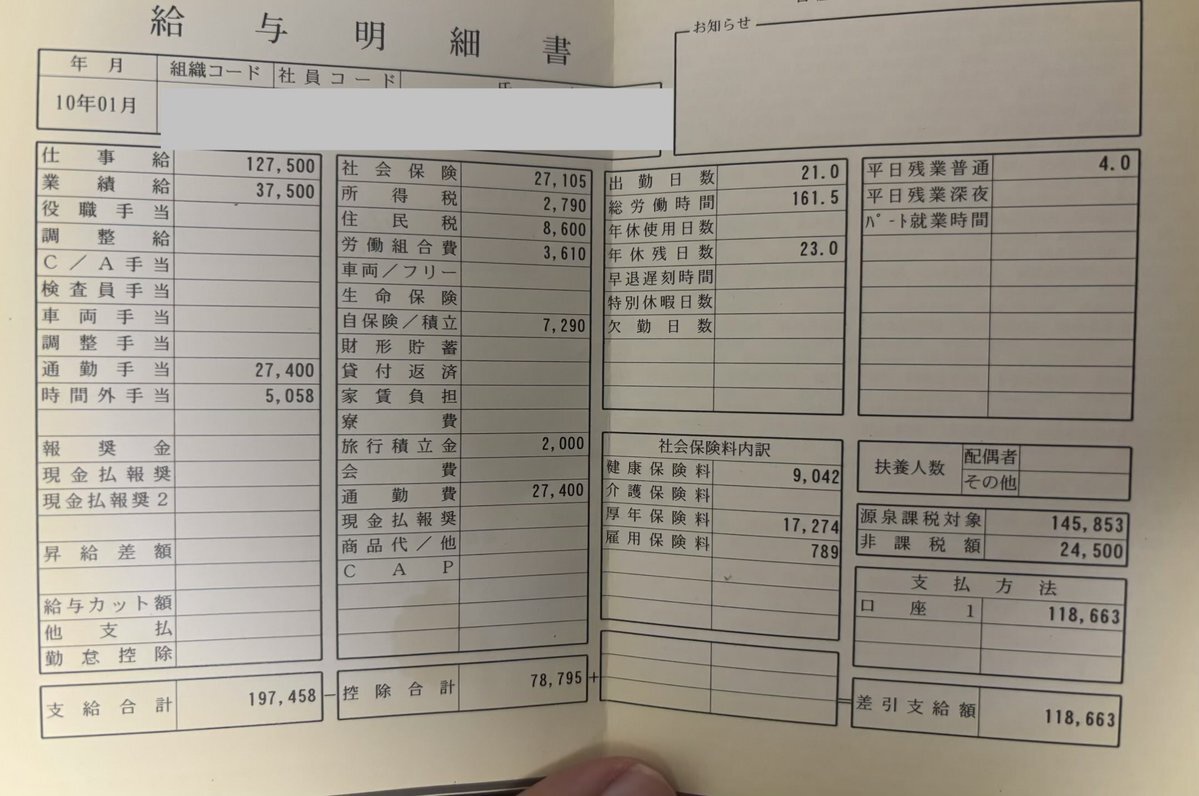 給与明細書
お知らせ
年月 組織コード 社員コード
10年01月
仕事給 127,500
業績給 37,500
役職手当
調整給
C/A手当
検査員手当
車両手当
調整手当
通勤手当 27,400
時間外手当 5,058
報奨金
現金払報奨
現金払報奨2
昇給差額
給与カット額
他支払
勤怠控除
支給合計 197,458 −
社会保険 27,105
所得税 2,790
住民税 8,600
労働組合費 3,610
車両/フリー
生命保険
自保険/積立 7,290
財形貯蓄
貸付返済
家賃負担
寮費
旅行積立金 2,000
会費
通勤費 27,400
現金払報奨
商品代/他
CAP
控除合計 78,795 +
出勤日数 21.0
総労働時間 161.5
年休使用日数
年休残日数 23.0
早退遅刻時間
特別休暇日数
欠勤日数
社会保険料内訳
健康保険料 9,042
介護保険料
厚年保険料 17,274
雇用保険料 789
平日残業普通 4.0
平日残業深夜
パート就業時間
扶養人数 配偶者
その他
源泉課税対象 145,853
非課税額 24,500
支払方法
口座1 118,663
=差引支給額 118,663